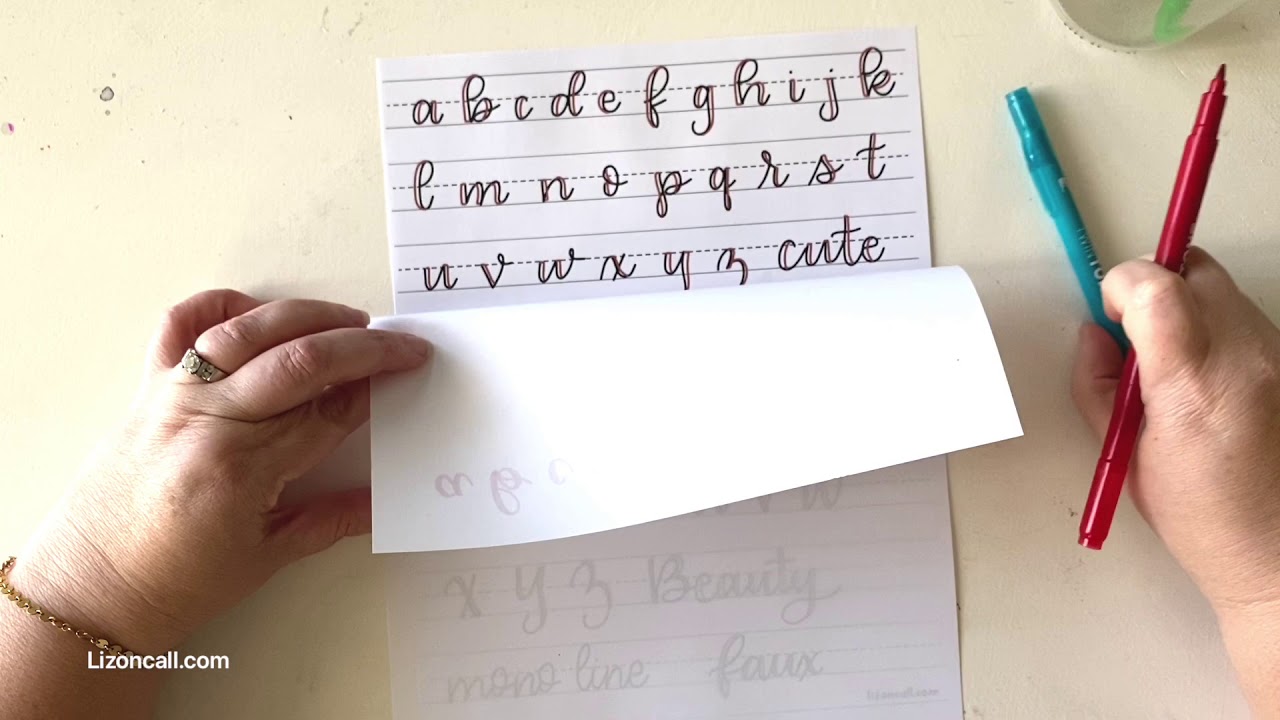 a b c d e f g h i j k
l m n o p q r s t
u v w x y z cute
a b c v w
x y z Beauty
mono line faux
lizoncall.com
Lizoncall.com